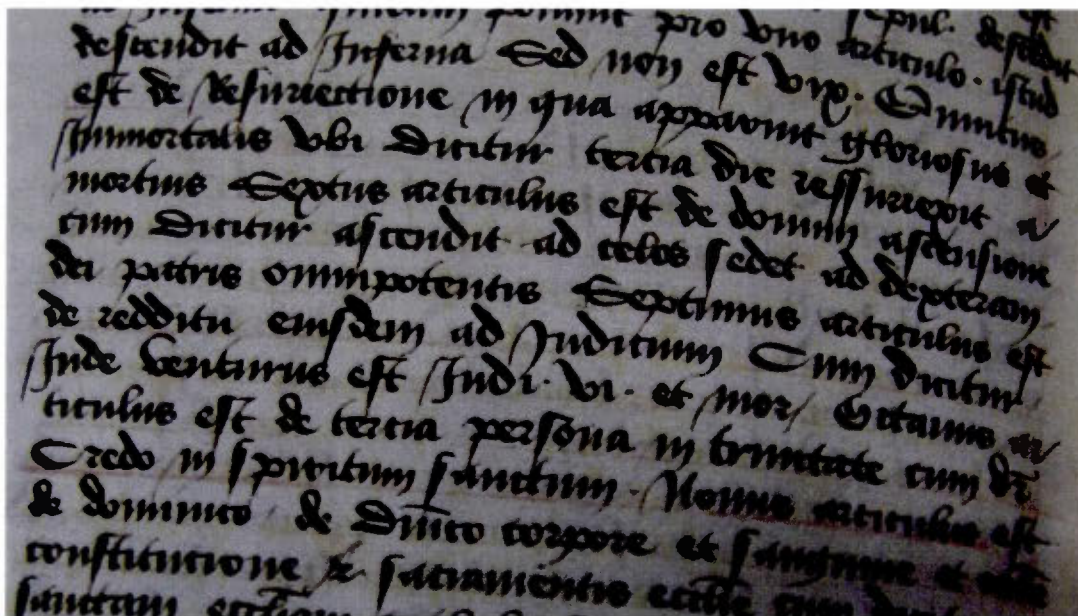 ponunt pro vno articulo. istud
descendit ad Inferna Sed non est vix. Quintus
est de Resurrectione in qua apparuit gloriosus et
Immortalis vbi Dicitur tercia die ressurrexit a
mortuis Sextus articulus est de domini ascensione
cum Dicitur ascendit ad celos sedet ad dexteram
dei patris omnipotentis Septimus articulus est
de redditu eiusdem ad Iudicium Cum dicitur
Inde venturus est Iudi. vi. et mor Octauus ar
ticulus est de tercia persona in trinitate cum dr
Credo in spiritum sanctum. Nonus articulus est
de dominico de Diuico corpore et sanguine et
constitucione sacramentis ecclie cum
sanctam eccliam